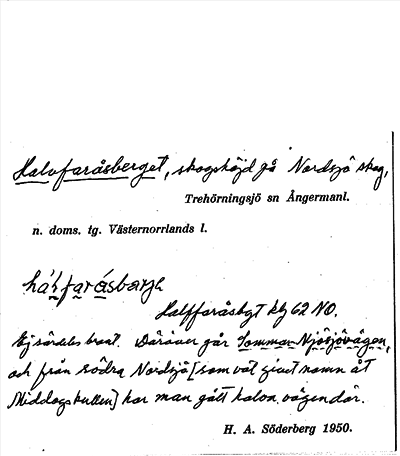 Halvfaråsberget, skogshöjd på Nordsjö skog,
Trehörningsjö sn Ångermanl.
n. doms. tg. Västernorrlands l.
Halffaråsbgt bg 62 NO.
Ej särdeles brant. Däröver går Sommar-Njösjövägen,
och från södra Nordsjö [som väl givet namn åt
Middagskullen] har man gått halva vägen där.
H. A. Söderberg 1950.